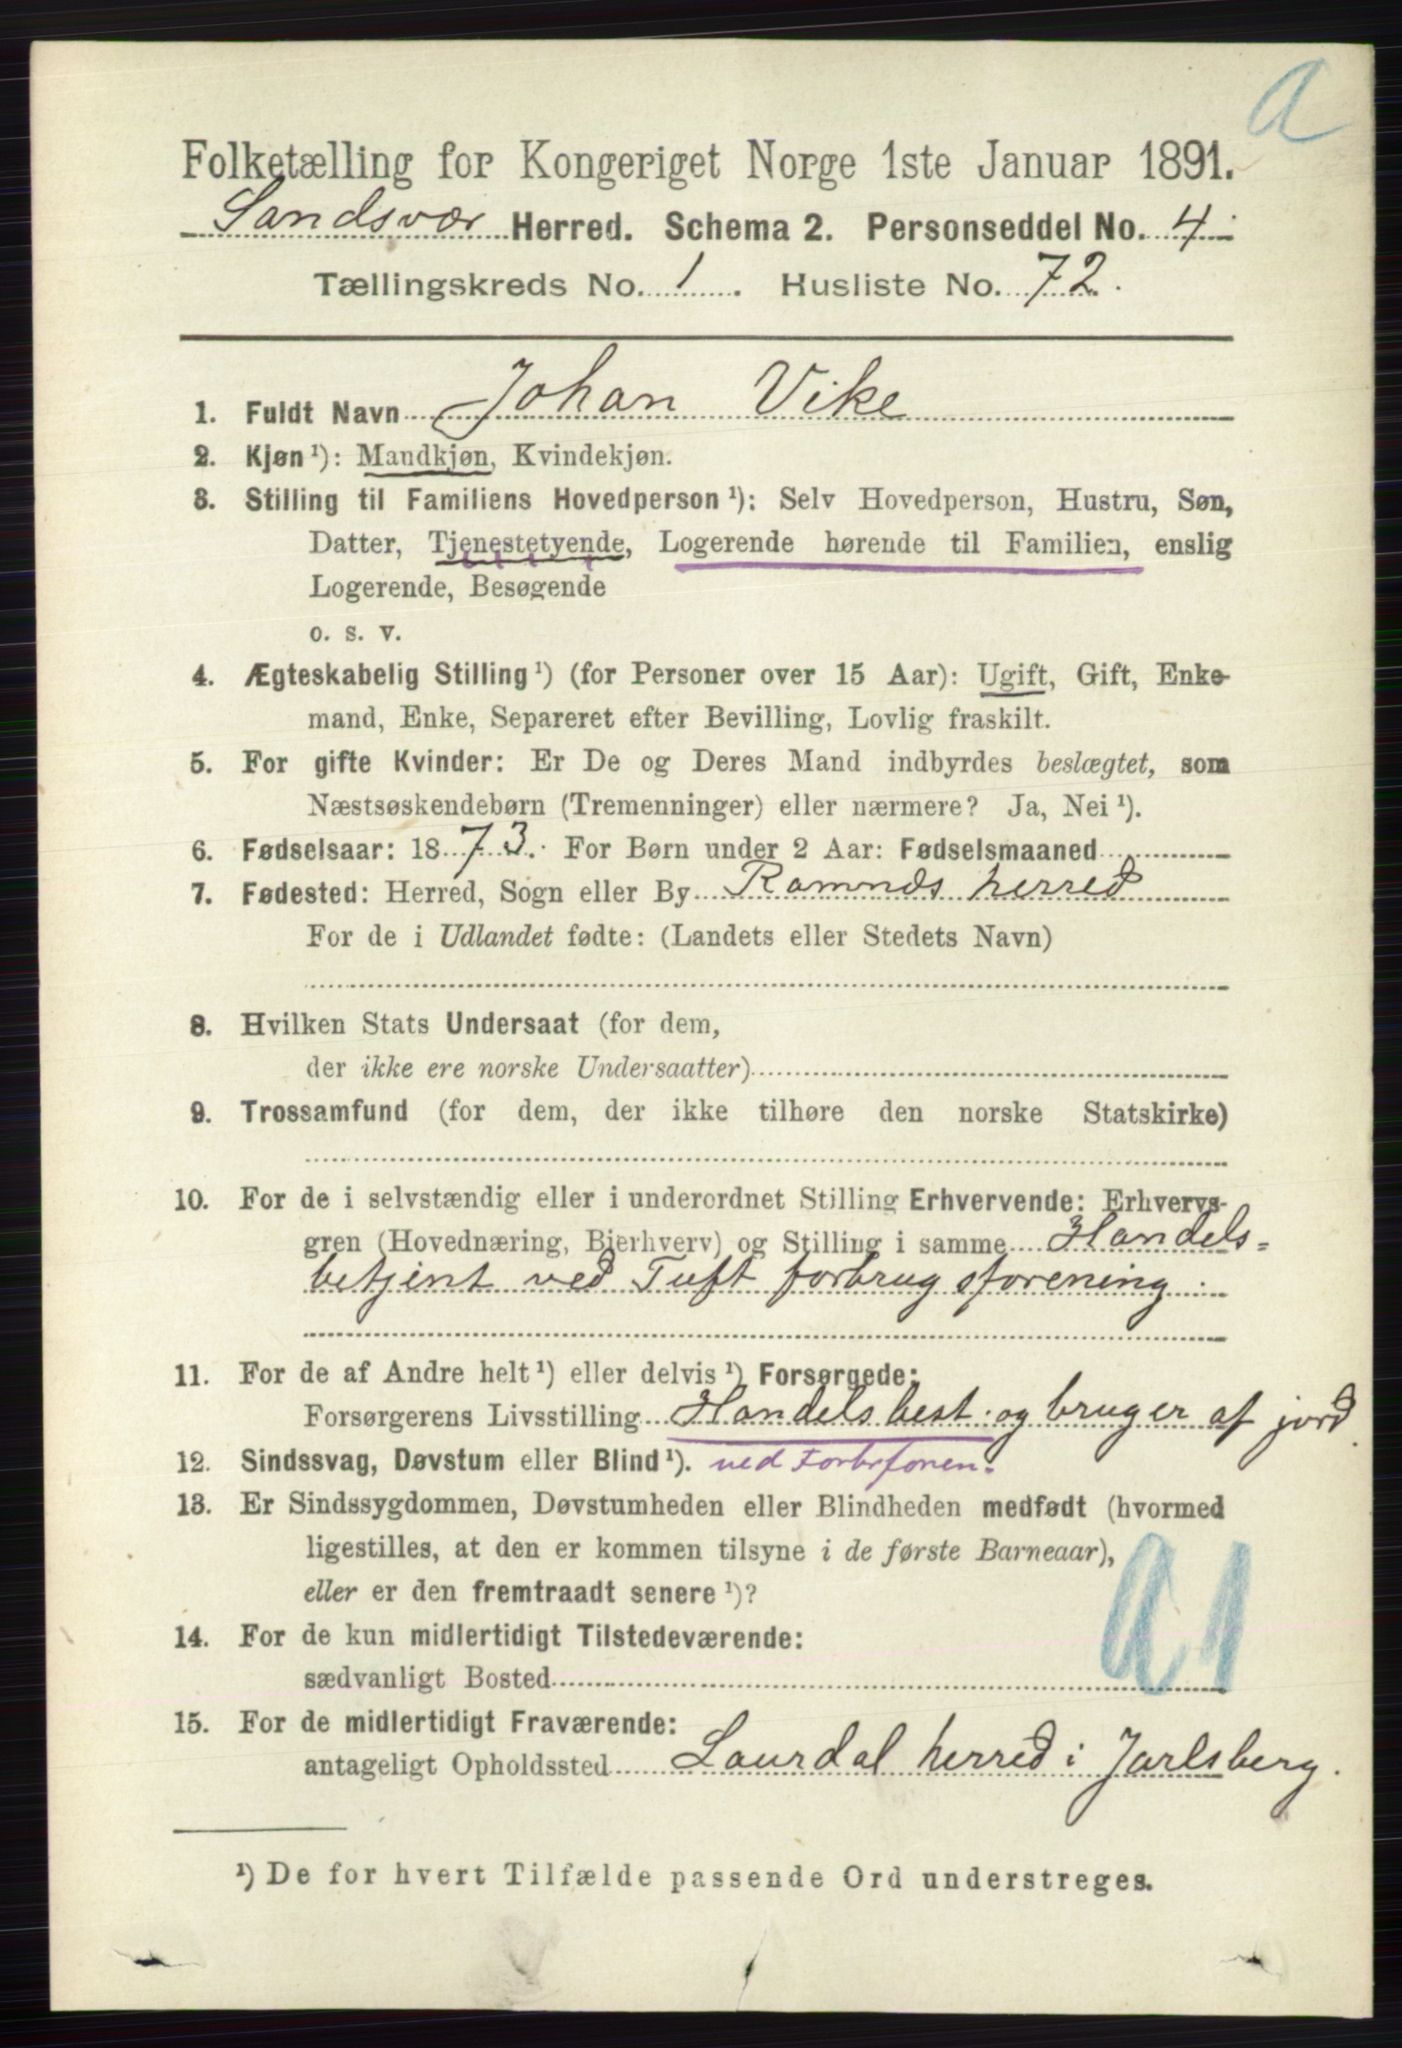 a
Folketælling for Kongeriget Norge 1ste Januar 1891.
Sandsvær Herred. Schema 2. Personseddel No. 4.
Tællingskreds No. 1. Husliste No. 72.
1. Fuldt Navn Johan Vike
2. Kjøn ¹): Mandkjøn, Kvindekjøn.
3. Stilling til Familiens Hovedperson ¹): Selv Hovedperson, Hustru, Søn,
Datter, Tjenestetyende, Logerende hørende til Familien, enslig
Logerende, Besøgende
o. s. v.
4. Ægteskabelig Stilling ¹) (for Personer over 15 Aar): Ugift, Gift, Enke-
mand, Enke, Separeret efter Bevilling, Lovlig fraskilt.
5. For gifte Kvinder: Er De og Deres Mand indbyrdes beslægtet, som
Næstsøskendebørn (Tremenninger) eller nærmere? Ja, Nei ¹).
6. Fødselsaar: 1873. For Børn under 2 Aar: Fødselsmaaned
7. Fødested: Herred, Sogn eller By Ramnds herred
For de i Udlandet fødte: (Landets eller Stedets Navn)
8. Hvilken Stats Undersaat (for dem,
der ikke ere norske Undersaatter)
9. Trossamfund (for dem, der ikke tilhøre den norske Statskirke)
10. For de i selvstændig eller i underordnet Stilling Erhvervende: Erhvervs-
gren (Hovednæring, Bierhverv) og Stilling i samme Handels-
betjent ved Tuft forbrugsforening.
11. For de af Andre helt ¹) eller delvis ¹) Forsørgede:
Forsørgerens Livsstilling Handelsbest. og bruger af jord.
12. Sindssvag, Døvstum eller Blind ¹). ved Forbrforen.
13. Er Sindssygdommen, Døvstumheden eller Blindheden medfødt (hvormed
ligestilles, at den er kommen tilsyne i de første Barneaar),
eller er den fremtraadt senere ¹)?
a1
14. For de kun midlertidigt Tilstedeværende:
sædvanligt Bosted
15. For de midlertidigt Fraværende:
antageligt Opholdssted Laurdal herred i Jarlsberg.
¹) De for hvert Tilfælde passende Ord understreges.